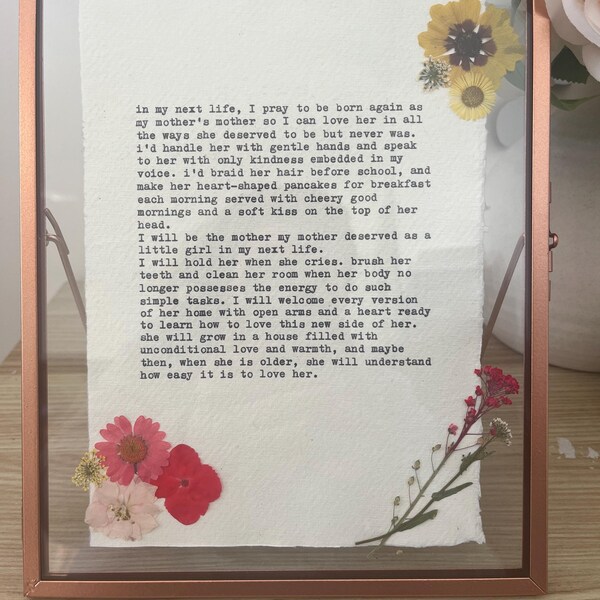 in my next life, I pray to be born again as
my mother's mother so I can love her in all
the ways she deserved to be but never was.
i'd handle her with gentle hands and speak
to her with only kindness embedded in my
voice. i'd braid her hair before school, and
make her heart-shaped pancakes for breakfast
each morning served with cheery good
mornings and a soft kiss on the top of her
head.
I will be the mother my mother deserved as a
little girl in my next life.
I will hold her when she cries. brush her
teeth and clean her room when her body no
longer possesses the energy to do such
simple tasks. I will welcome every version
of her home with open arms and a heart ready
to learn how to love this new side of her.
she will grow in a house filled with
unconditional love and warmth, and maybe
then, when she is older, she will understand
how easy it is to love her.